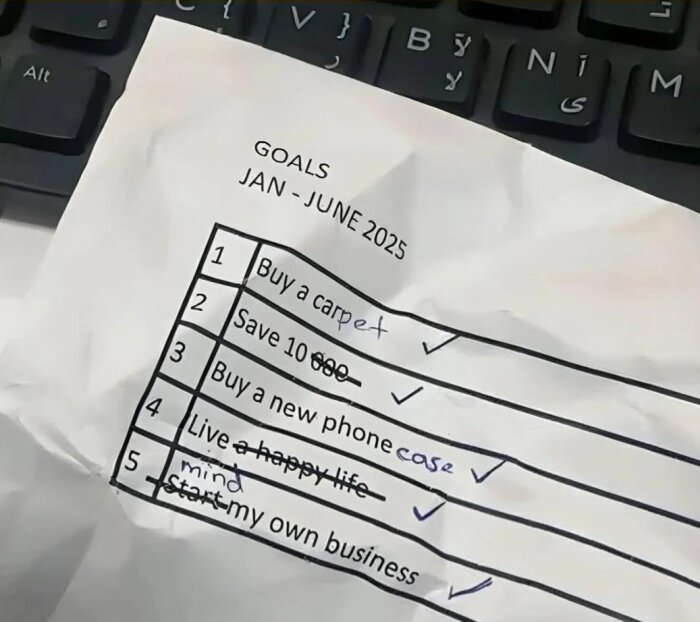 C {
V }
ر
B لآ
لا
N آ
ى
M
Alt
GOALS
JAN - JUNE 2025
1 Buy a carpet ✓
2 Save 10 000 ✓
3 Buy a new phone case ✓
4 Live a happy life ✓
mind
5 Start my own business ✓